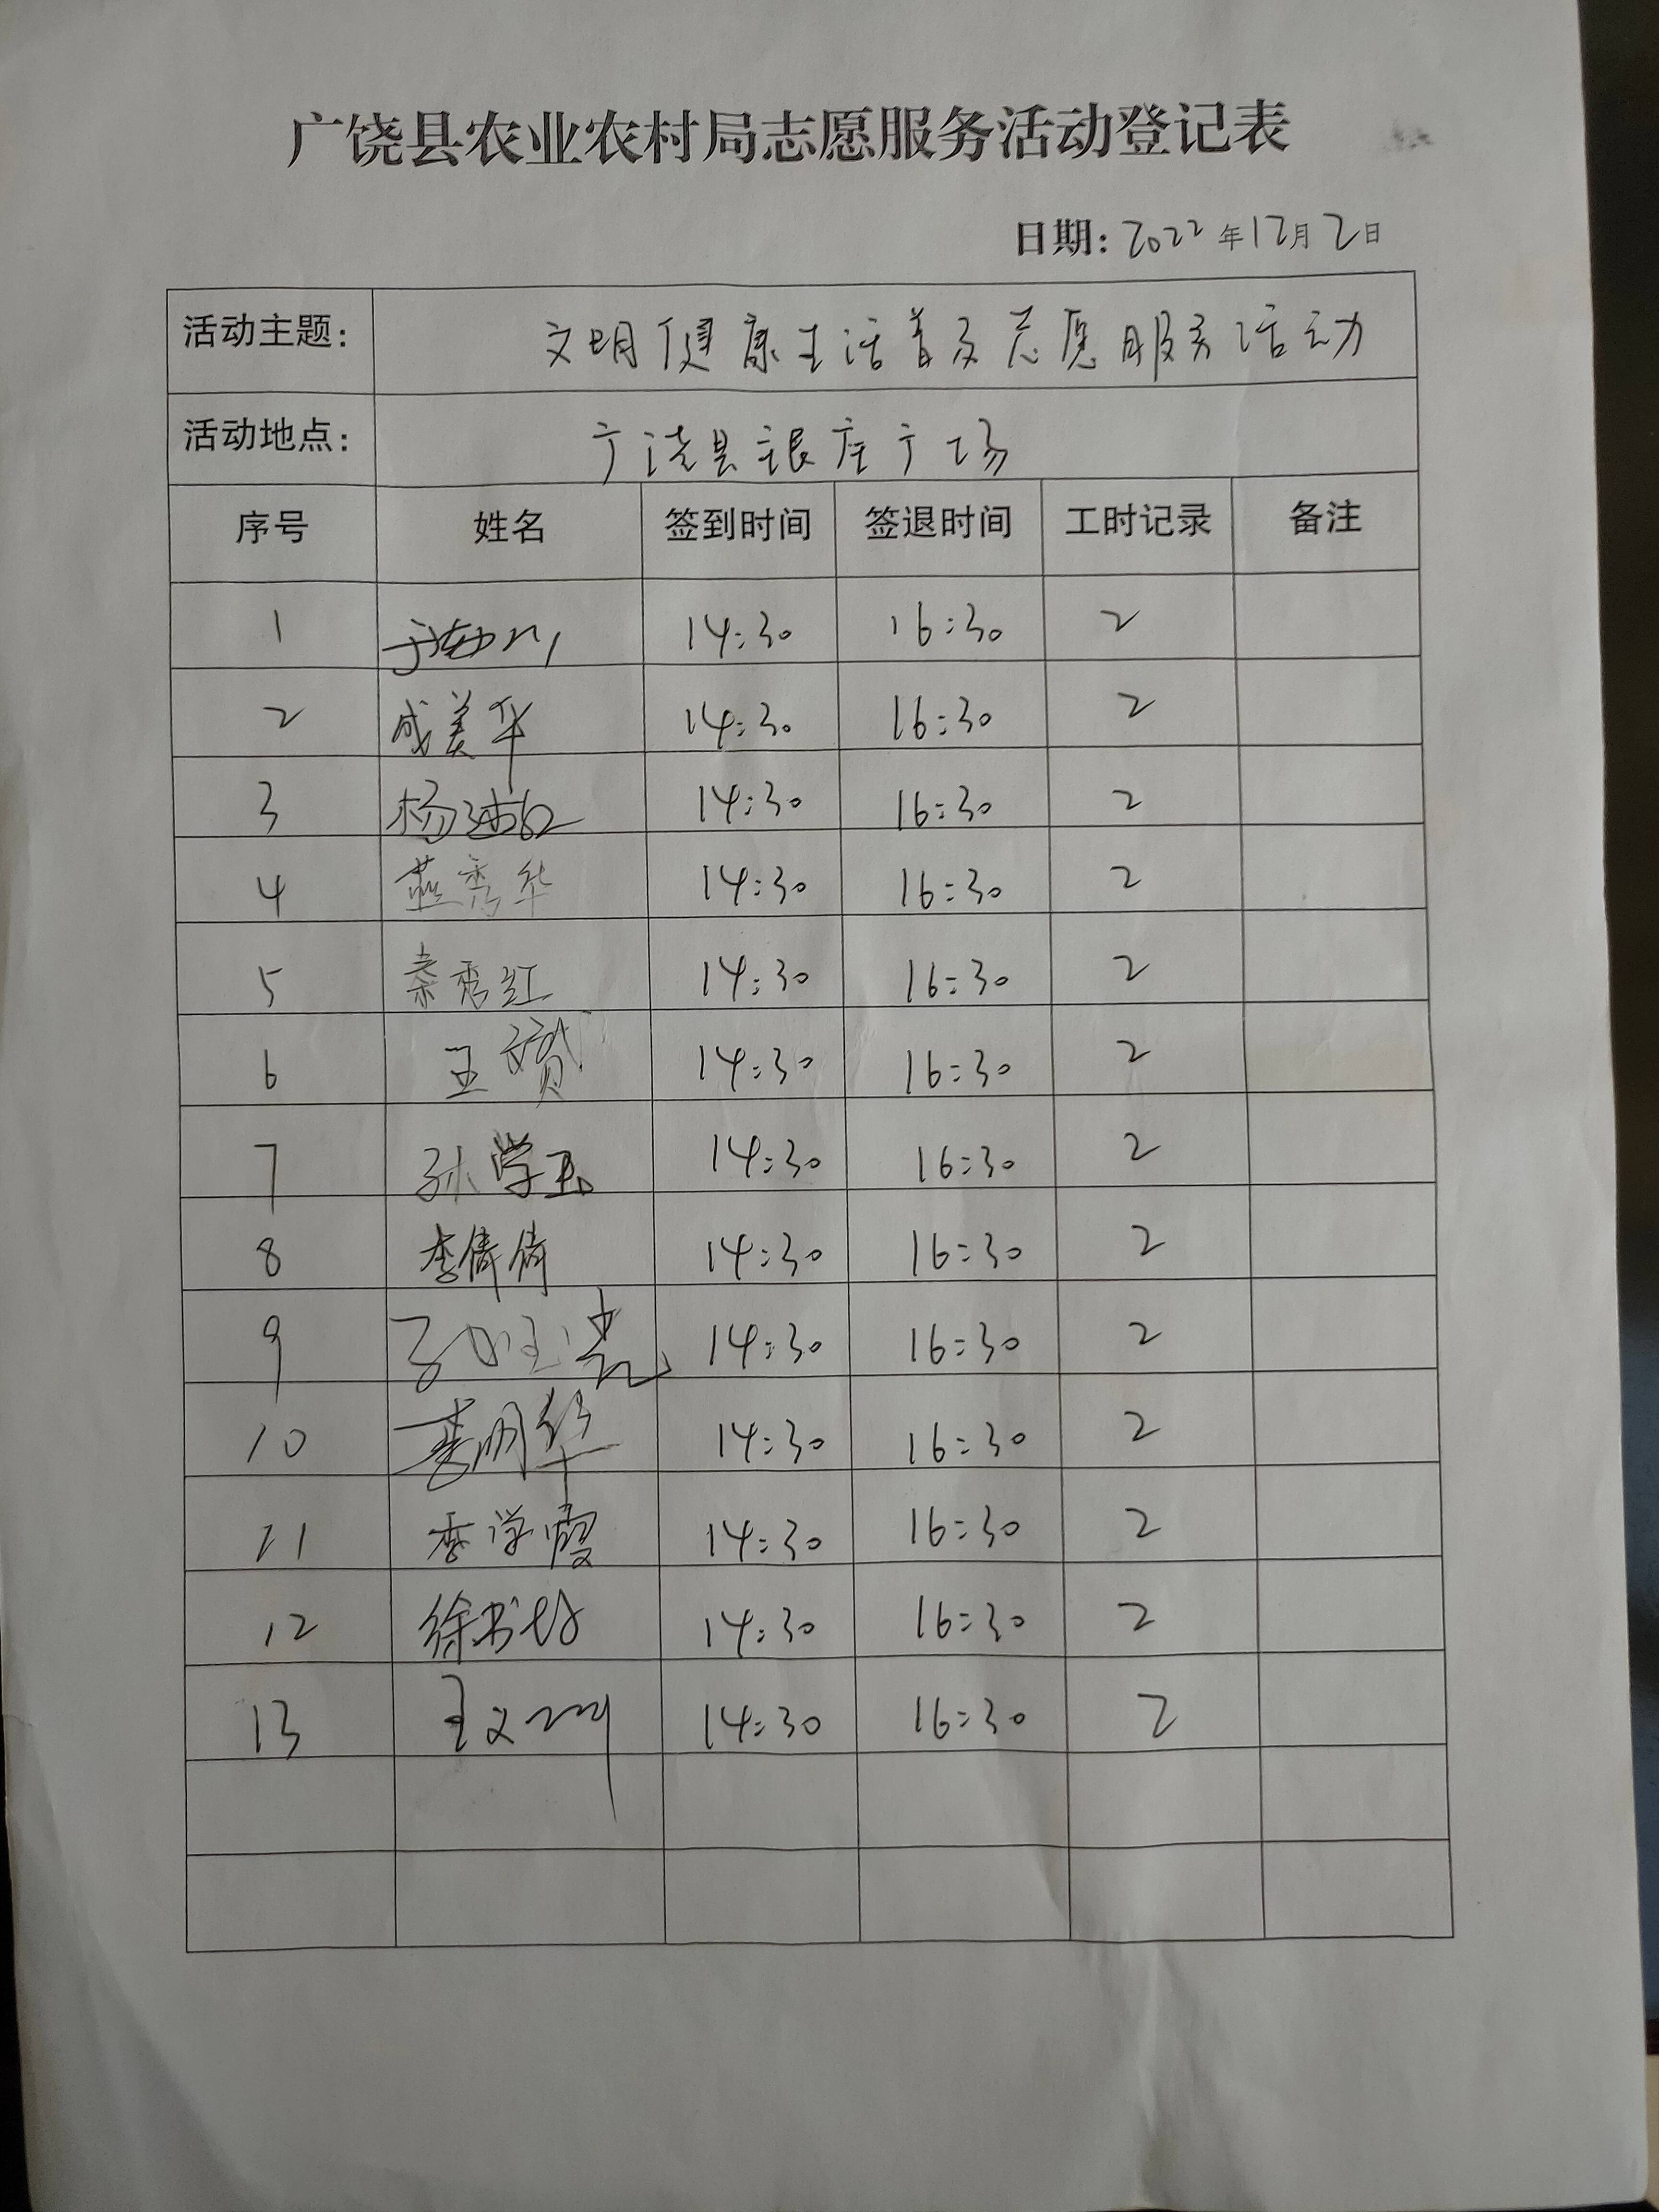 广饶县农业农村局志愿服务活动登记表
日期: 2022年12月2日
活动主题: 文明健康生活普及志愿服务活动
活动地点: 广饶县银座广场
序号 姓名 签到时间 签退时间 工时记录 备注
1 14:30 16:30 2
2 成美华 14:30 16:30 2
3 杨 14:30 16:30 2
4 燕秀华 14:30 16:30 2
5 秦秀红 14:30 16:30 2
6 王赟 14:30 16:30 2
7 孙学玉 14:30 16:30 2
8 李倩倩 14:30 16:30 2
9 14:30 16:30 2
10 李明华 14:30 16:30 2
11 李学霞 14:30 16:30 2
12 徐书 14:30 16:30 2
13 王文 14:30 16:30 2